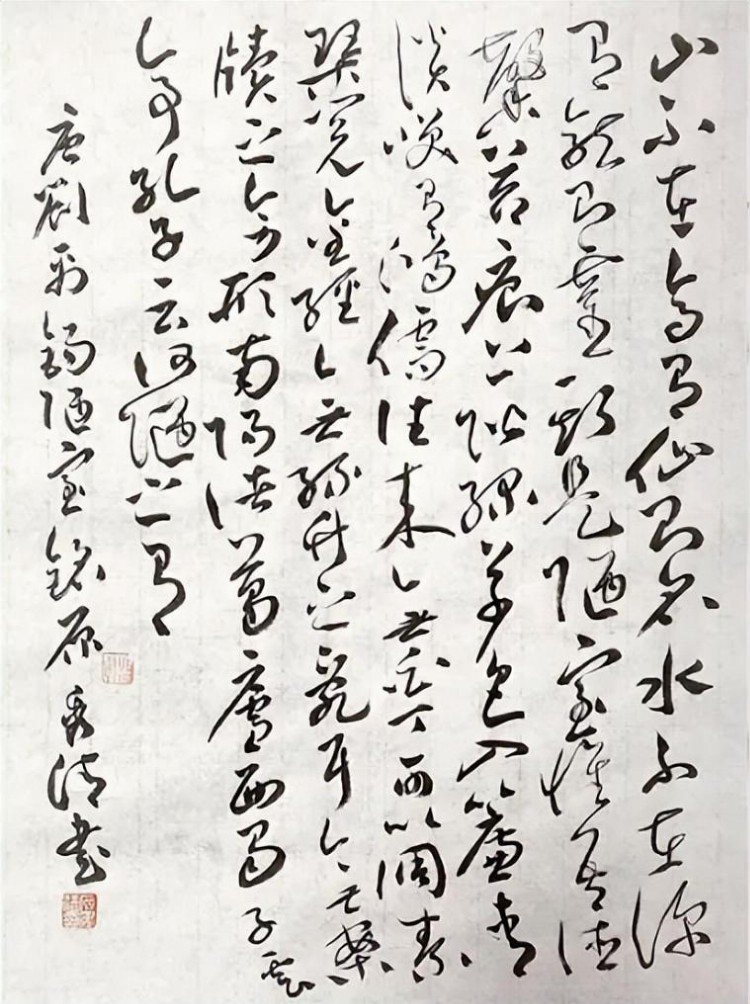 山不在高有仙則名水不在深
有龍則靈斯是陋室惟吾德
馨苔痕上階綠草色入簾青
談笑有鴻儒往來無白丁可以調素
琴閱金經無絲竹之亂耳無案
牘之勞形南陽諸葛廬西蜀子雲
亭孔子云何陋之有
唐劉禹錫陋室銘原秀清書